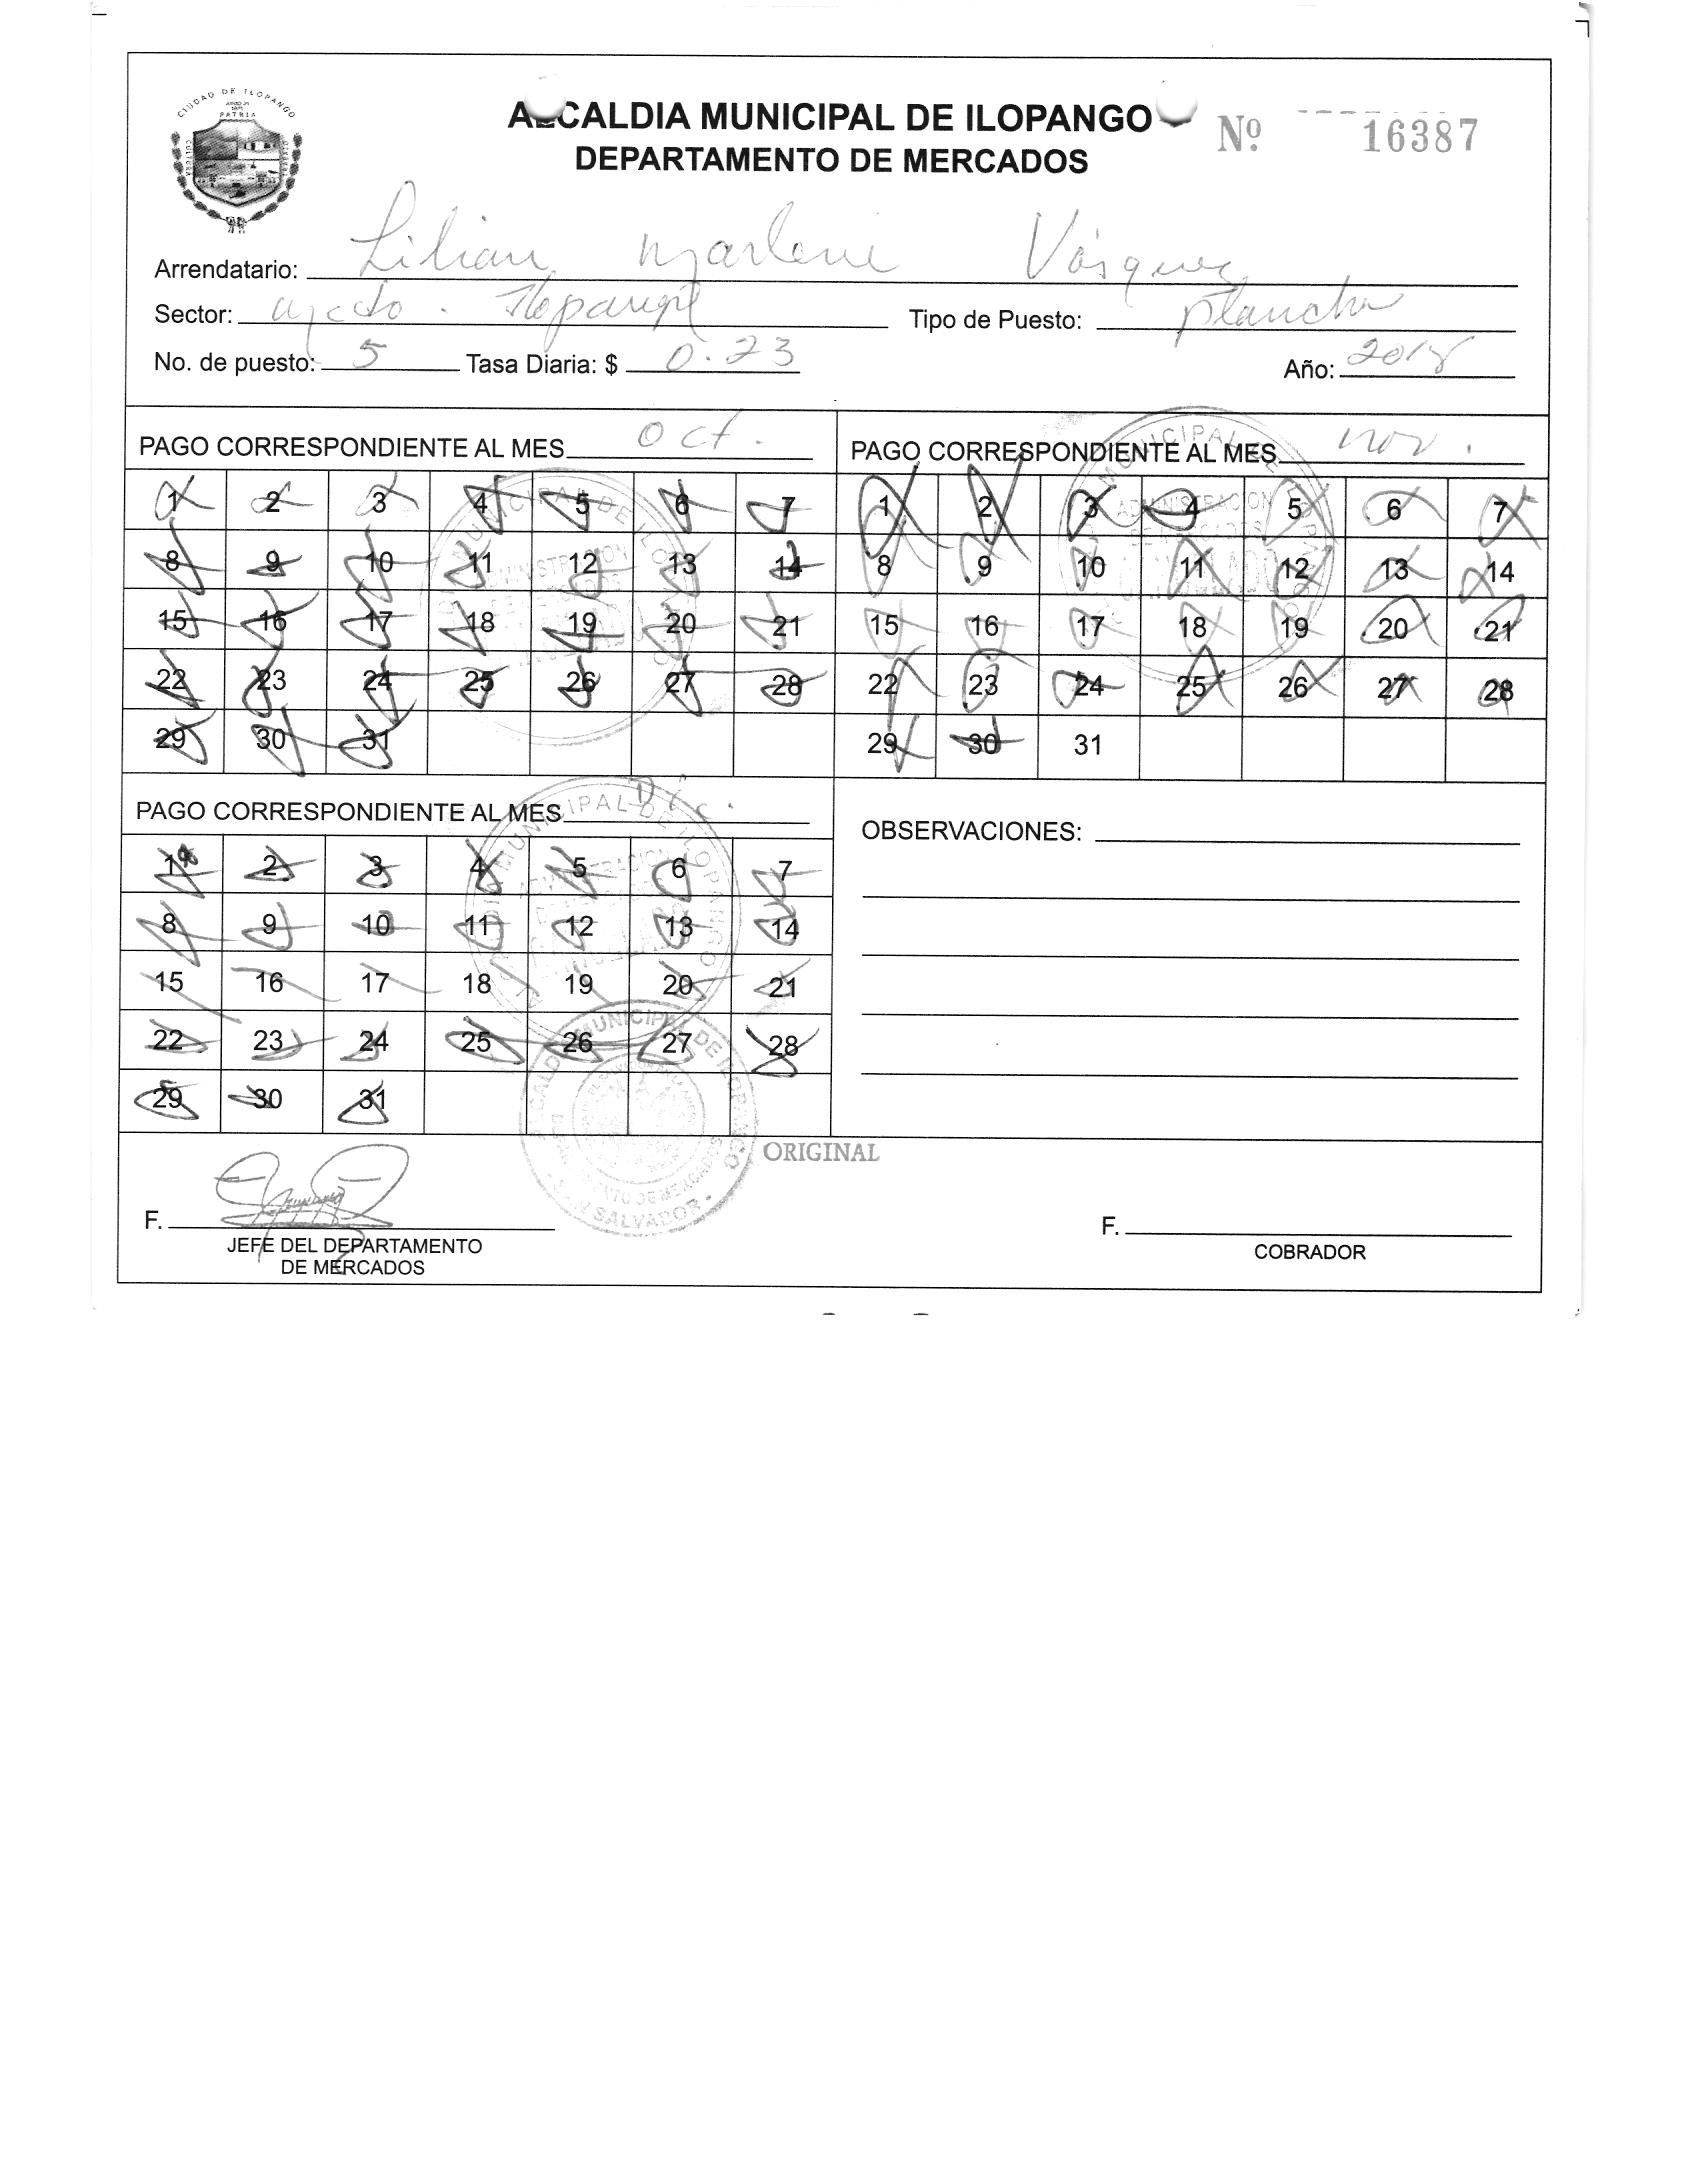 CIUDAD DE ILOPANGO
PATRIA
ALCALDIA MUNICIPAL DE ILOPANGO
Nº 16387
DEPARTAMENTO DE MERCADOS
Arrendatario: Lilian Marlene Vásquez
Sector: Ilopango Tipo de Puesto: plancha
No. de puesto: 5 Tasa Diaria: $ 0.23 Año: 2018
PAGO CORRESPONDIENTE AL MES Oct.
1 2 3 4 5 6 7
8 9 10 11 12 13 14
15 16 17 18 19 20 21
22 23 24 25 26 27 28
29 30 31
PAGO CORRESPONDIENTE AL MES nov.
1 2 3 4 5 6 7
8 9 10 11 12 13 14
15 16 17 18 19 20 21
22 23 24 25 26 27 28
29 30 31
PAGO CORRESPONDIENTE AL MES Dic.
1 2 3 4 5 6 7
8 9 10 11 12 13 14
15 16 17 18 19 20 21
22 23 24 25 26 27 28
29 30 31
OBSERVACIONES:
ALCALDIA MUNICIPAL DE ILOPANGO
DEPARTAMENTO DE MERCADOS
SAN SALVADOR
ORIGINAL
F.
JEFE DEL DEPARTAMENTO
DE MERCADOS
F.
COBRADOR